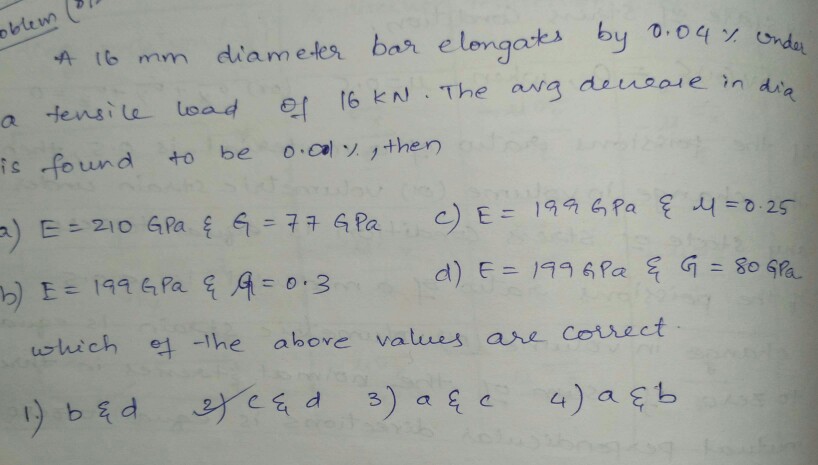 oblem (01)
A 16 mm diameter bar elongates by 0.04 % under
a tensile load of 16 KN. The avg decrease in dia
is found to be 0.01 %, then
a) E = 210 GPa & G = 77 GPa
c) E = 199 GPa & μ = 0.25
b) E = 199 GPa & = 0.3
d) E = 199 GPa & G = 80 GPa
which of the above values are correct.
1) b & d 2) c & d 3) a & c 4) a & b